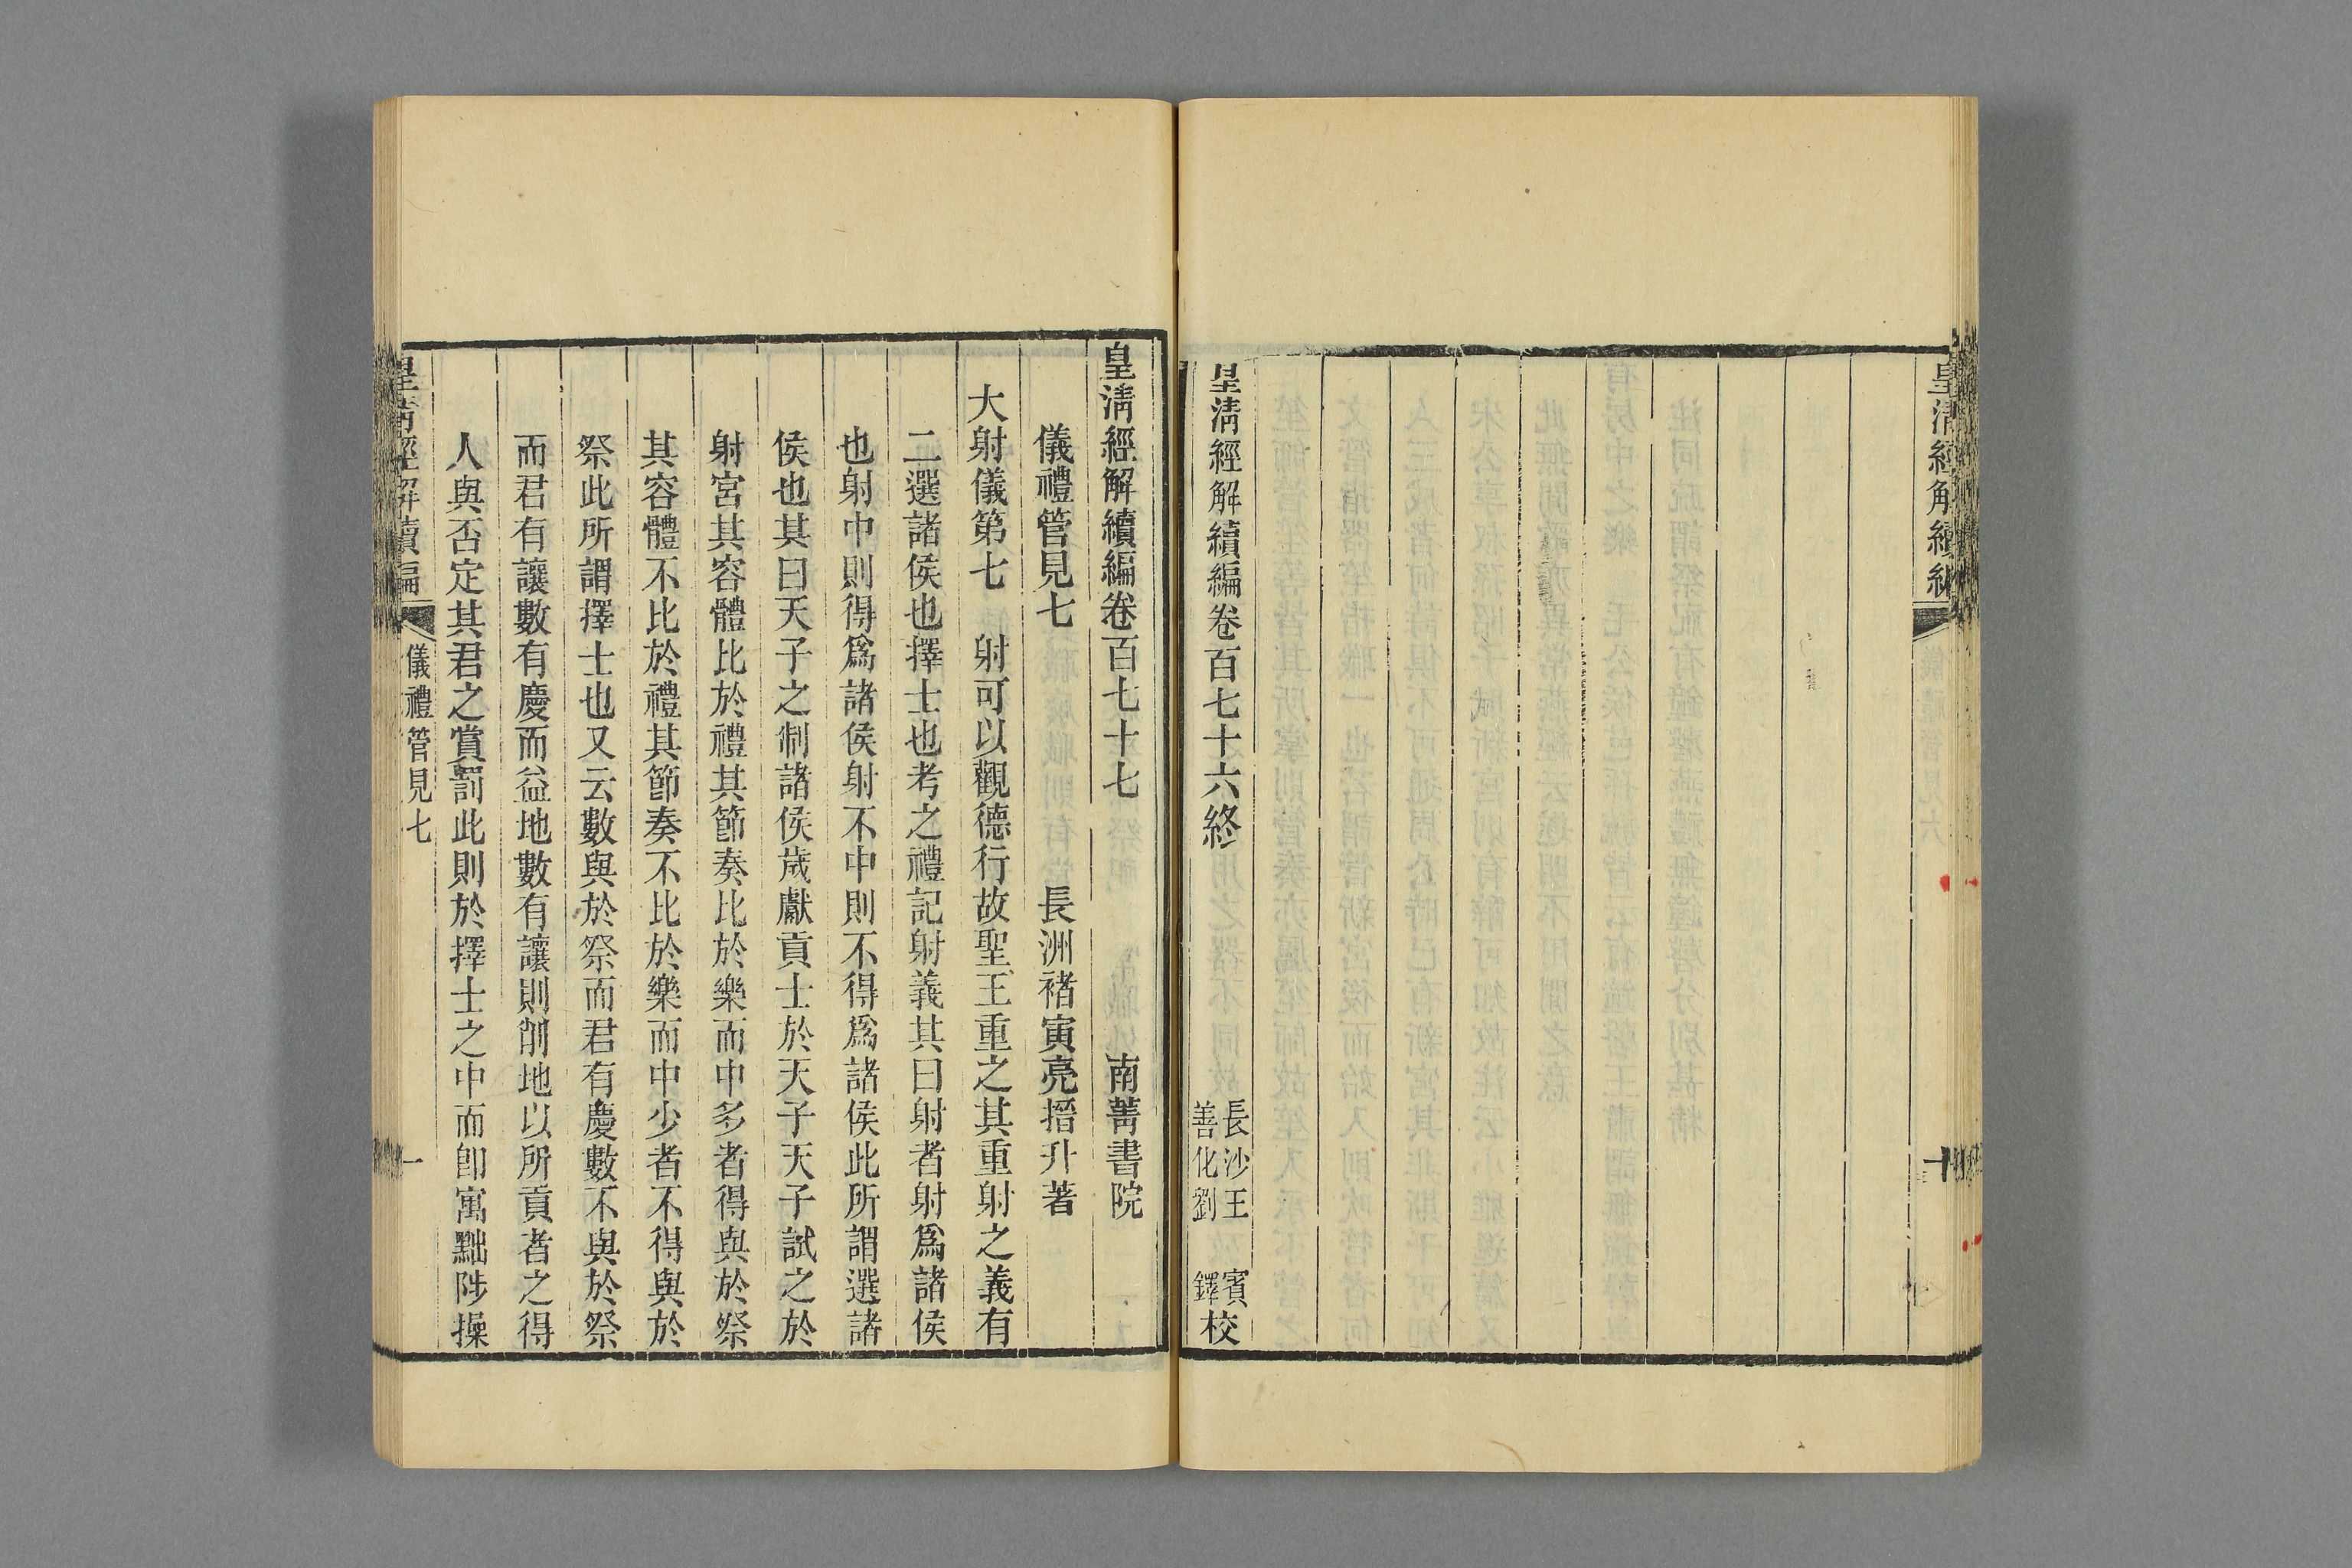 皇清經解續編
皇清經解續編卷百七十六終
長沙王賓
善化劉鐸
校
皇清經解續編卷百七十七 南菁書院
儀禮管見七 長洲褚寅亮搢升著
大射儀第七 射可以觀德行故聖王重之其重射之義有
二選諸侯也擇士也考之禮記射義其曰射者射爲諸侯
也射中則得爲諸侯射不中則不得爲諸侯此所謂選諸
侯也其曰天子之制諸侯歲獻貢士於天子天子試之於
射宮其容體比於禮其節奏比於樂而中多者得與於祭
其容體不比於禮其節奏不比於樂而中少者不得與於
祭此所謂擇士也又云數與於祭而君有慶數不與於祭
而君有讓數有慶而益地數有讓則削地以所貢者之得
人與否定其君之賞罰此則於擇士之中而卽寓黜陟操
皇清經解續編 儀禮管見七 一